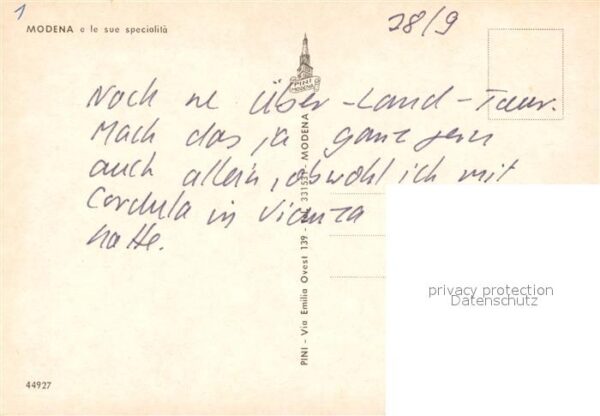 1
MODENA e le sue specialità
28/9
PINI
MODENA
Noch ne Über-Land-Tour.
Mach das ja ganz gern
auch allein, obwohl ich mit
Cordula in Vicenza
hatte.
PINI - Via Emilia Ovest 139 - 331531 - MODENA
privacy protection
Datenschutz
44927